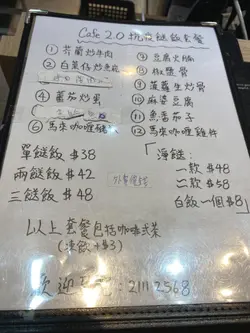 Cafe 2.0 抗疫餸飯套餐
① 芥蘭炒牛肉
② 白菜仔炒魚
④ 蕃茄炒蛋
⑥ 馬來咖喱
豆腐火腩
椒鹽骨
菠蘿生炒骨
⑩ 麻婆豆腐
⑪ 魚香茄子
⑫ 馬來咖喱雞件
單餸飯 $38
兩餸飯 $42
三餸飯 $48
淨餸:
一款 $48
二款 $58
白飯一個 $8
以上套餐包括咖啡或茶
(凍飲+$3)
歡迎 : 2111 2568